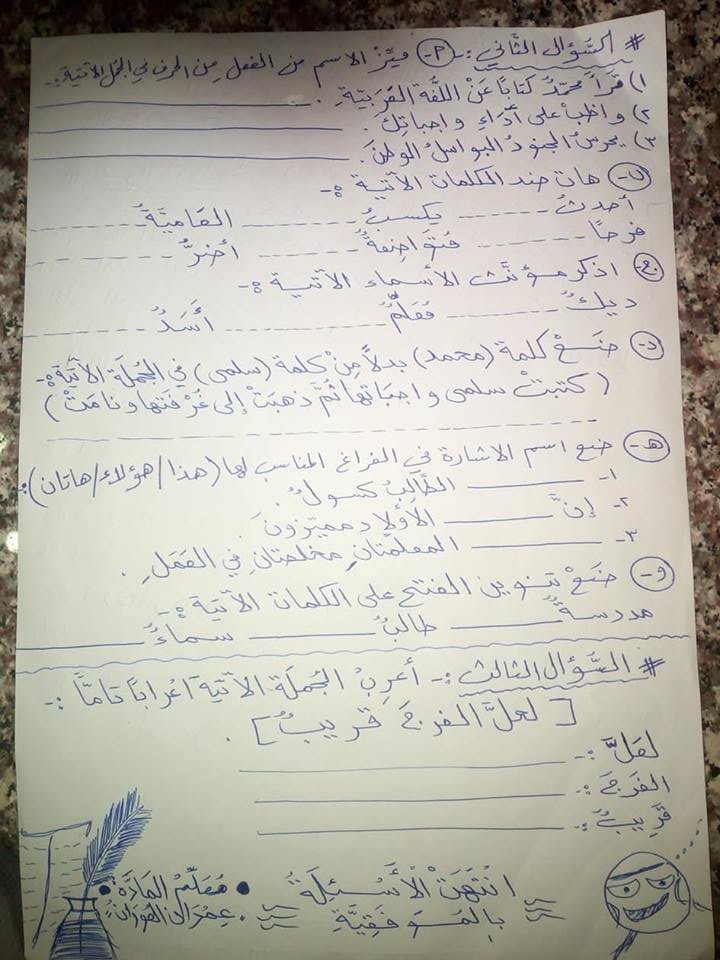 # السَّؤال الثَّاني :- (م-) ميّزْ الاسم من الفعل من الحرف في الجمل الآتية :-
١) قرأ محمّدٌ كتاباً عَنْ اللغَّة العَرَبيّة .
٢) واظبْ على أداءِ واجباتِكَ .
٣) يحرسُ الجنودُ البواسلُ الوطنَ .
ب- هات ضد الكلمات الآتية :-
أحدثُ يكسبُ العَاميَّةُ
فرحاً مُتَواضِعةٌ أضرُّ
ج- اذكر مؤنَّث الأسماء الآتية :-
ديكٌ مُعَلِّمٌ أَسَدٌ
د- ضَعْ كلمة (محمد) بدلاً مِنْ كلمة (سلمى) في الجُملَة الآتيَة :-
( كتبتْ سلمى واجباتها ثمَّ ذهبَتْ إلى غُرْفَتها ونامَتْ )
هـ- ضع اسم الاشارة في الفراغ المناسب لها (هذا/هؤلاء/هاتان) :-
١- الطَّالِبُ كسولٌ .
٢- إنَّ الأوْلادِ مميّزونَ .
٣- المعلمَّتانِ مخلصتانِ في العَمَلِ .
و- ضَعْ تنوين الفتح على الكلمات الآتية :-
مدرسةٌ طالبٌ سماءٌ
# السَّؤال الثالث :- أعربْ الجُملَة الآتيَة اعْراباً تامّاً :-
[ لعلَّ الفرجَ قريبٌ ] .
لعَلَّ :-
الفَرَجَ :-
قَرِيبٌ :-
انْتَهَتْ الْأَسْئِلَةُ
بِالمُوَفَقِيَّةِ
• مُعَلِّمُ المَادَّةِ •
• عِمْرَان الفَوْزَان